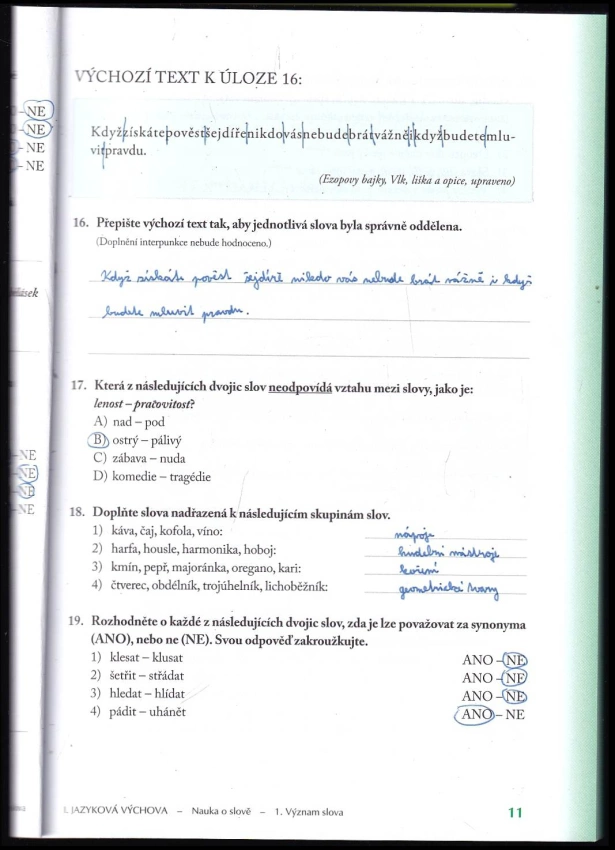 VÝCHOZÍ TEXT K ÚLOZE 16:
- NE
- NE
- NE
- NE
Kdyžzískátepověstšejdířenikdovásnebudebrátvážněikdyžbudetemlu-
vitpravdu.
(Ezopovy bajky, Vlk, liška a opice, upraveno)
16. Přepište výchozí text tak, aby jednotlivá slova byla správně oddělena.
(Doplnění interpunkce nebude hodnoceno.)
Když získáte pověst šejdíře nikdo vás nebude brát vážně i když
budete mluvit pravdu.
17. Která z následujících dvojic slov neodpovídá vztahu mezi slovy, jako je:
lenost – pracovitost?
A) nad – pod
B) ostrý – pálivý
C) zábava – nuda
D) komedie – tragédie
-NE
-NE
-NE
-NE
18. Doplňte slova nadřazená k následujícím skupinám slov.
1) káva, čaj, kofola, víno: nápoje
2) harfa, housle, harmonika, hoboj: hudební nástroje
3) kmín, pepř, majoránka, oregano, kari: koření
4) čtverec, obdélník, trojúhelník, lichoběžník: geometrické tvary
19. Rozhodněte o každé z následujících dvojic slov, zda je lze považovat za synonyma
(ANO), nebo ne (NE). Svou odpověď zakroužkujte.
1) klesat – klusat ANO – NE
2) šetřit – střádat ANO – NE
3) hledat – hlídat ANO – NE
4) pádit – uhánět ANO – NE
I. JAZYKOVÁ VÝCHOVA – Nauka o slově – 1. Význam slova 11